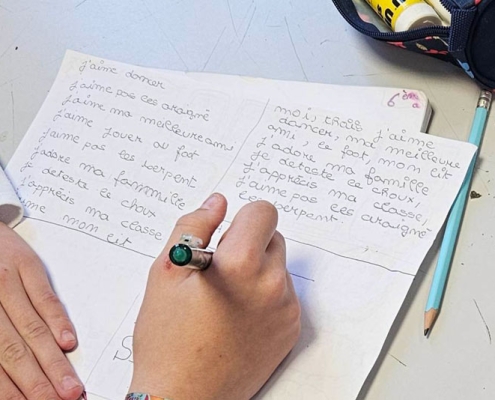 j'aime danser
j'aime pas les araigné
j'aime ma meilleure ami
j'aime jouer au foot
j'aime pas les serpent
j'adore ma fammille
je deteste le choux
j'apprécis ma classe
j'aime mon lit
6°
moi, j'aime
danser, ma meilleure
ami, le foot, mon lit
j'adore ma famille
je deteste le choux,
j'apprécis ma classe,
j'aime pas les araigné
les serpent